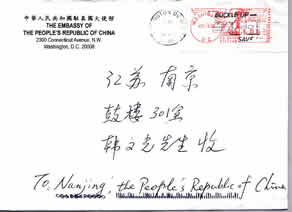 中華人民共和國駐美國大使館
THE EMBASSY OF
THE PEOPLE'S REPUBLIC OF CHINA
2300 Connecticut Avenue, N.W.
Washington, D.C. 20008
BUCKLE UP
SAVE
江苏 南京
鼓楼 301室
韩文光先生 收
To. Nanjing, the People's Republic of China